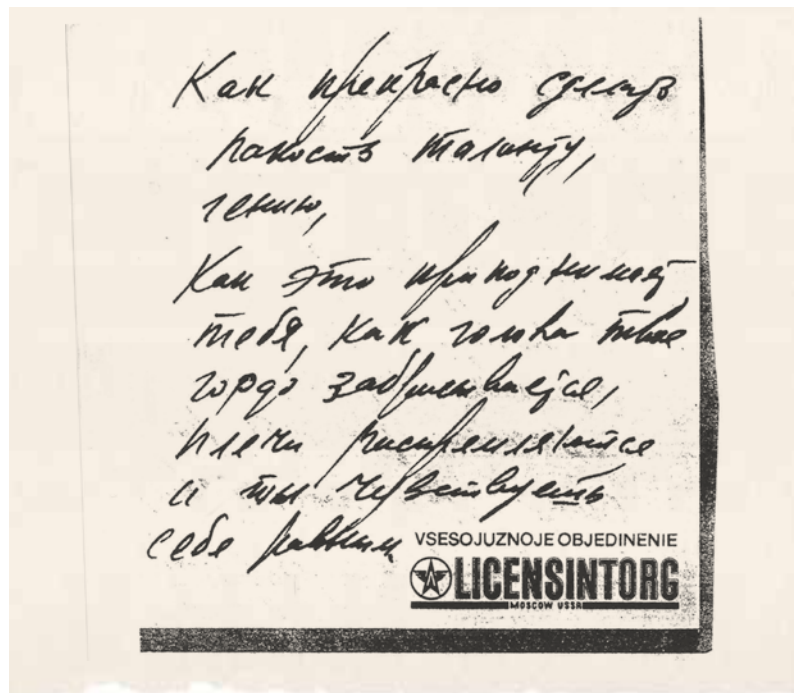 Как прекрасно сделать
пакость таланту,
гению,
Как это приподнимает
тебя, как голова твоя
гордо забрасывается,
плечи распрямляются
и ты чувствуешь
себя равным
VSESOJUZNOJE OBJEDINENIE
LICENSINTORG
MOSCOW USSR